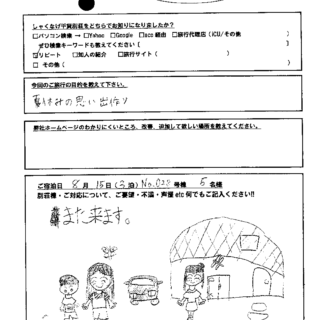 しゃくなげ平貸別荘をどちらでお知りになりましたか？
□パソコン検索 → □Yahoo □Google □aco 経由 □旅行代理店 (iCU/その他 )
ぜひ検索キーワードも教えてください ( )
☑リピート □知人の紹介 □旅行サイト ( )
□ その他 ( )
今回のご旅行の目的を教えて下さい。
夏休みの思い出作り
弊社ホームページのわかりにくいところ、改善、追加して欲しい場所を教えてください。
ご宿泊日 8月 15日 (3泊) No.028号棟 5名様
別荘・ご対応について、ご要望・不満・声援 etc 何でもご記入ください!!
また来ます。